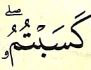 كَسَبْتُمُۥ ۖ